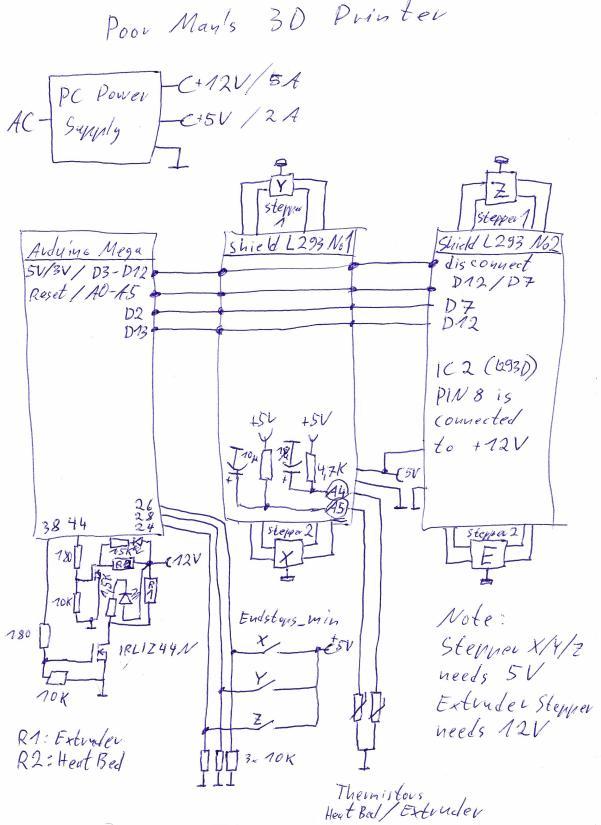 Poor Man's 3D Printer
PC Power
Supply
AC
+12V/5A
+5V/2A
Y
stepper
1
Z
stepper1
Arduino Mega
5V/3V/D3-D12
Reset/A0-A5
D2
D13
Shield L293 No1
Shield L293 No2
disconnect
D12/D7
D7
D12
IC2 (L293D)
PIN 8 is
connected
to +12V
+5V
+5V
10µ
4,7K
A4
A5
5V
26
28
24
38 44
stepper2
X
stepper2
E
180
15K
R2
12V
10K
15K
R1
180
IRLIZ44N
10K
Endstops_min
X
+5V
Y
Z
3x 10K
R1: Extruder
R2: Heat Bed
Note:
Stepper X/Y/Z
needs 5V
Extruder Stepper
needs 12V
Thermistors
Heat Bed/Extruder